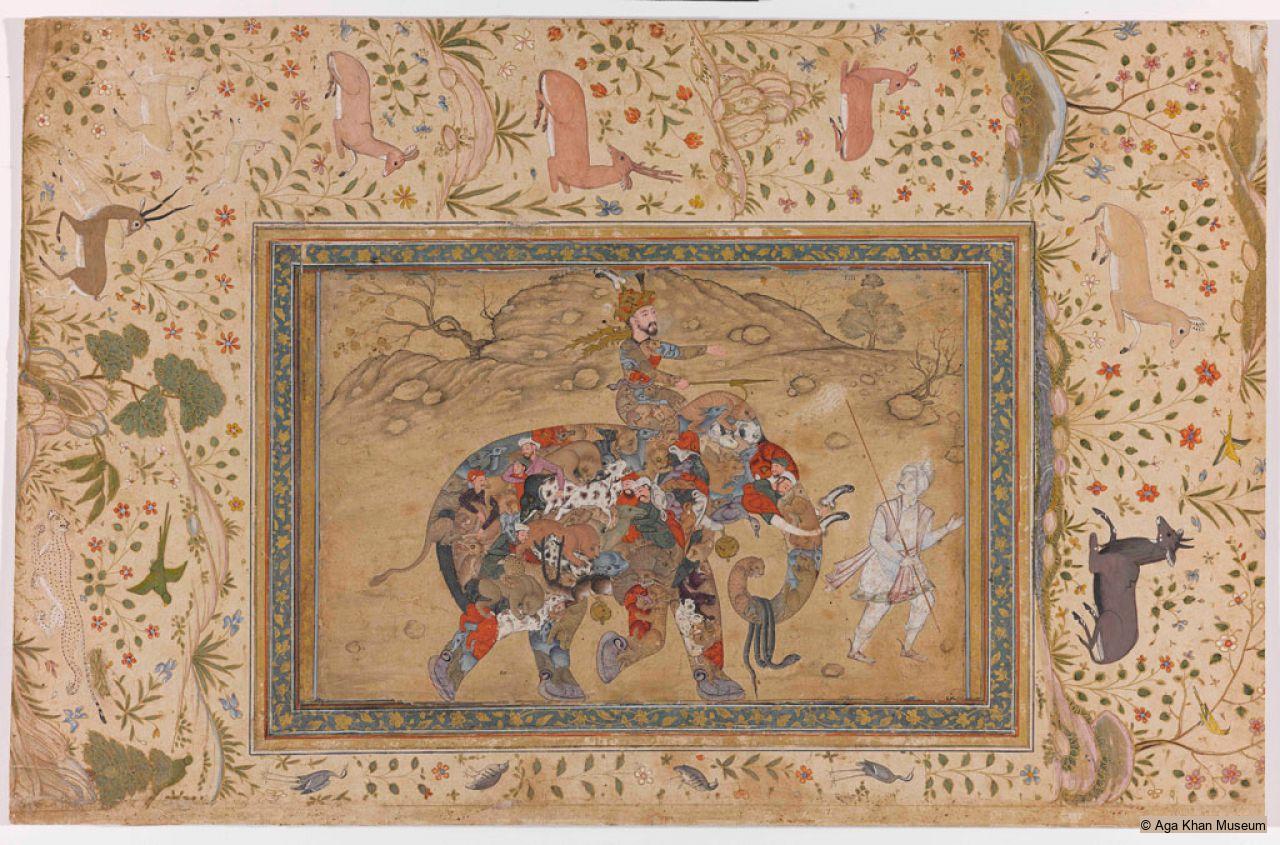 © Aga Khan Museum